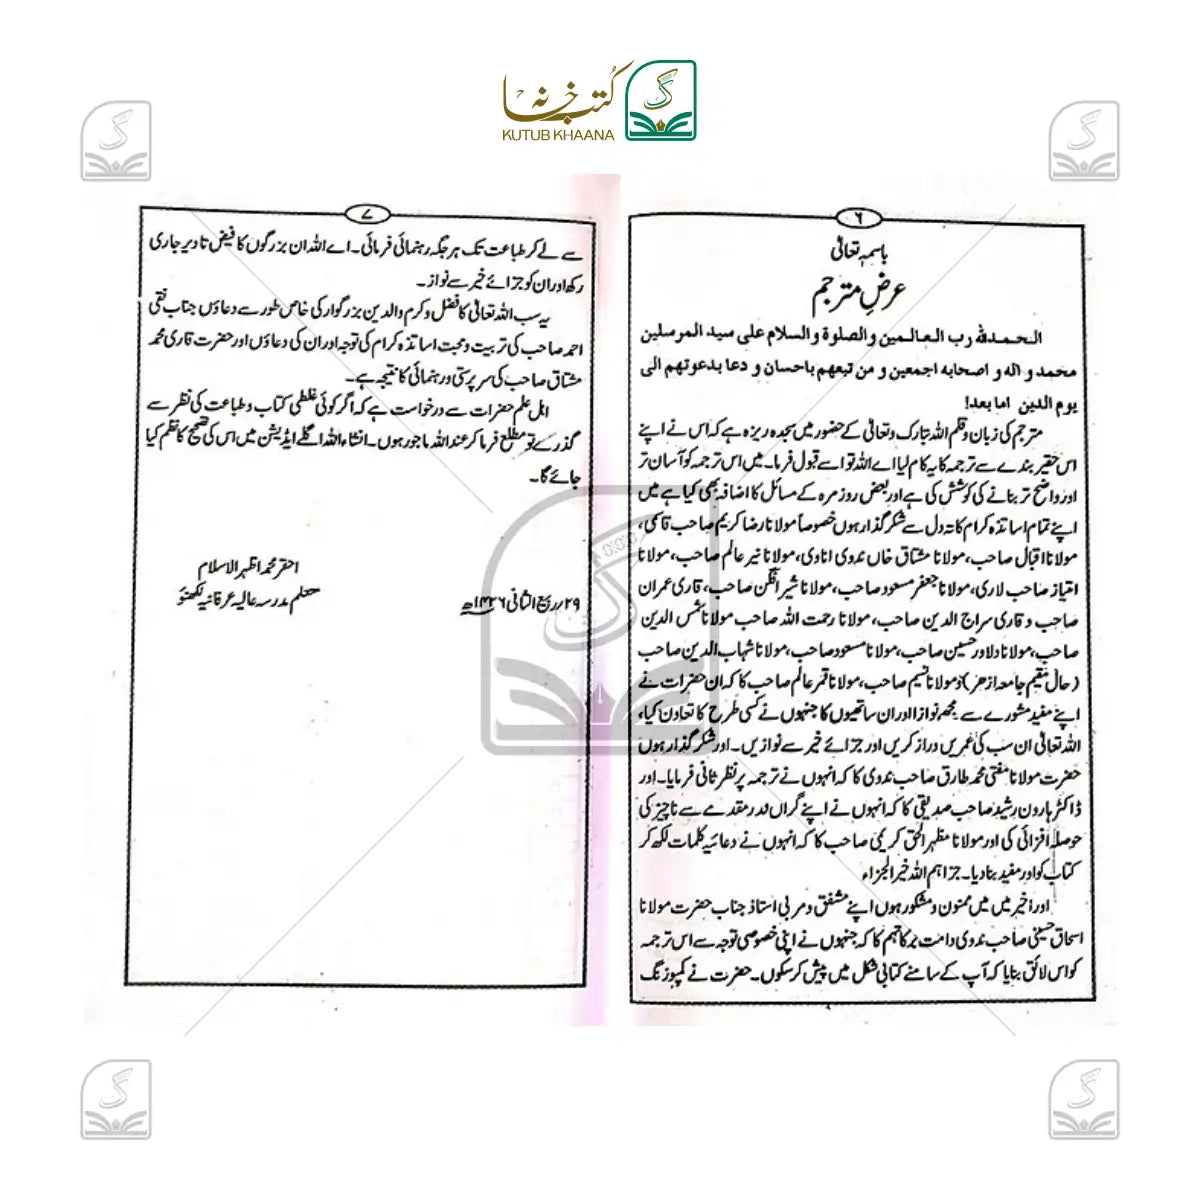 کتب خانہ
KUTUB KHAANA
۶
باسمہٖ تعالیٰ
عرضِ مترجم
الحمدللہ رب العالمین والصلوۃ والسلام علی سید المرسلین
محمد و الہ و اصحابہ اجمعین و من تبعھم باحسان و دعا بدعوتھم الی
یوم الدین اما بعد!
مترجم کی زبان و قلم اللہ تبارک وتعالیٰ کے حضور میں سجدہ ریزہ ہے کہ اس نے اپنے
اس حقیر بندے سے ترجمہ کا یہ کام لیا اے اللہ تو اسے قبول فرما۔ میں اس ترجمہ کو آسان تر
اور واضح تر بنانے کی کوشش کی ہے اور بعض روز مرہ کے مسائل کا اضافہ بھی کیا ہے میں
اپنے تمام اساتذہ کرام کا تہ دل سے شکر گذار ہوں خصوصاً مولانا رضا کریم صاحب قاسمی،
مولانا اقبال صاحب، مولانا مشتاق خاں ندوی اناوی، مولانا نیر عالم صاحب، مولانا
امتیاز صاحب لاری، مولانا جعفر مسعود صاحب، مولانا شیر افگن صاحب، قاری عمران
صاحب و قاری سراج الدین صاحب، مولانا رحمت اللہ صاحب مولانا شمس الدین
صاحب، مولانا دلاور حسین صاحب، مولانا مسعود صاحب، مولانا شہاب الدین صاحب
(حال مقیم جامعہ ازہر) و مولانا نسیم صاحب، مولانا قمر عالم صاحب کا کہ ان حضرات نے
اپنے مفید مشورے سے مجھے نوازا اور ان ساتھیوں کا جنہوں نے کسی طرح کا تعاون کیا،
اللہ تعالیٰ ان سب کی عمریں دراز کریں اور جزائے خیر سے نوازیں۔ اور شکر گذار ہوں
حضرت مولانا مفتی محمد طارق صاحب ندوی کا کہ انہوں نے ترجمہ پر نظر ثانی فرمایا۔ اور
ڈاکٹر ہارون رشید صاحب صدیقی کا کہ انہوں نے اپنے گراں قدر مقدمے سے ناچیز کی
حوصلہ افزائی کی اور مولانا مظہر الحق کریمی صاحب کا کہ انہوں نے دعائیہ کلمات لکھ کر
کتاب کو اور مفید بنا دیا۔ جزاہم اللہ خیر الجزاء
اور اخیر میں میں ممنون و مشکور ہوں اپنے مشفق و مربی استاذ جناب حضرت مولانا
اسحاق حسینی صاحب ندوی دامت برکاتہم کا کہ جنہوں نے اپنی خصوصی توجہ سے اس ترجمہ
کو اس لائق بنایا کہ آپ کے سامنے کتابی شکل میں پیش کر سکوں۔ حضرت نے کمپوزنگ
۷
سے لے کر طباعت تک ہر جگہ رہنمائی فرمائی۔ اے اللہ ان بزرگوں کا فیض تا دیر جاری
رکھ اور ان کو جزائے خیر سے نواز۔
یہ سب اللہ تعالیٰ کا فضل و کرم والدین بزرگوار کی خاص طور سے دعاؤں جناب نقی
احمد صاحب کی تربیت و محبت اساتذہ کرام کی توجہ اور ان کی دعاؤں اور حضرت قاری محمد
مشتاق صاحب کی سرپرستی و رہنمائی کا نتیجہ ہے۔
اہل علم حضرات سے درخواست ہے کہ اگر کوئی غلطی کتاب و طباعت کی نظر سے
گذرے تو مطلع فرما کر عند اللہ ماجور ہوں۔ انشاء اللہ اگلے ایڈیشن میں اس کی تصحیح کا نظم کیا
جائے گا۔
احقر محمد اظہر الاسلام
۲۹؍ ربیع الثانی ۱۴۲۶ھ
معلم مدرسہ عالیہ عرفانیہ لکھنؤ